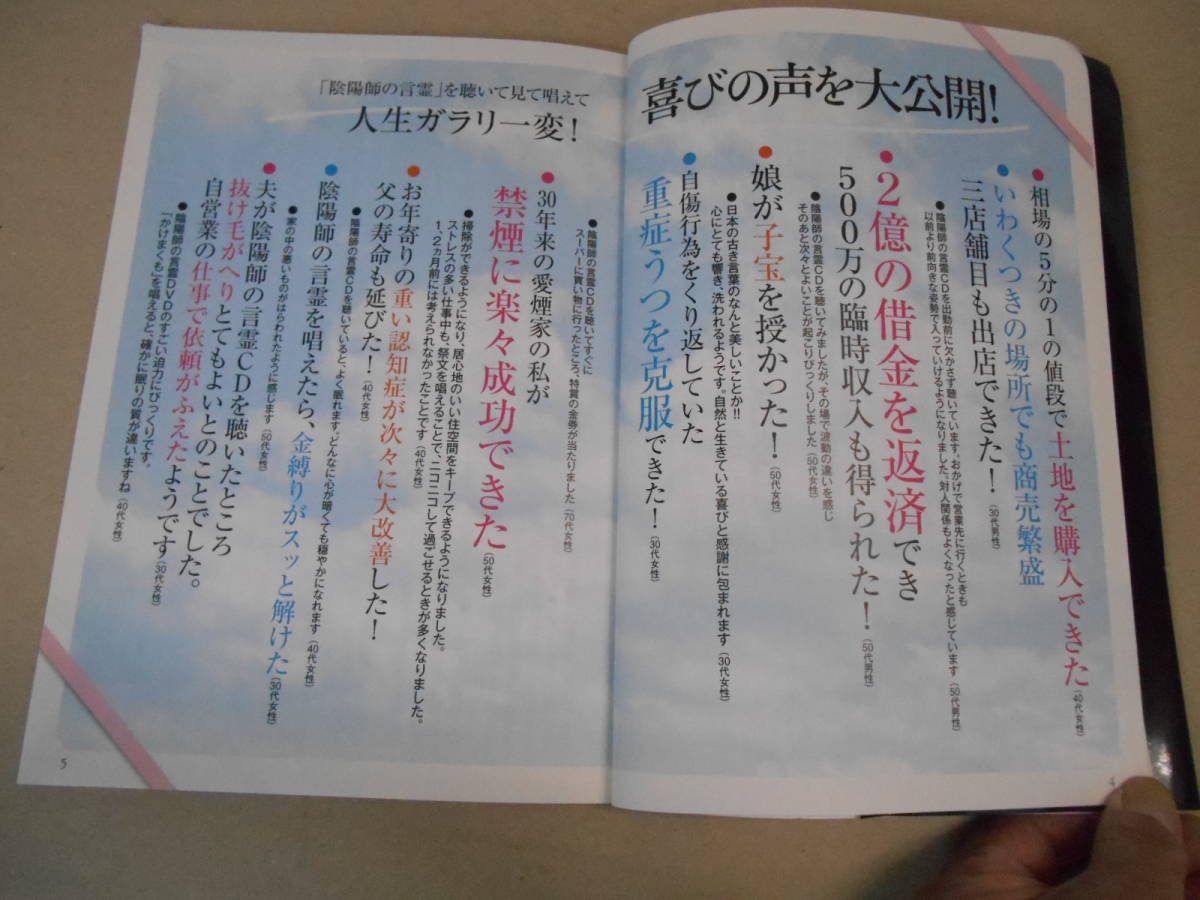 喜びの声を大公開!
●相場の5分の1の値段で土地を購入できた(40代女性)
●いわくつきの場所でも商売繁盛
三店舗目も出店できた!(30代男性)
●陰陽師の言霊CDを出勤前に欠かさず聴いています。おかげで営業先に行くときも
以前より前向きな姿勢で入っていけるようになりました。対人関係もよくなったと感じています(50代男性)
●2億の借金を返済でき
500万の臨時収入も得られた!(50代男性)
●陰陽師の言霊CDを聴いてみましたが、その場で波動の違いを感じ
そのあと次々とよいことが起こりびっくりしました(50代女性)
●娘が子宝を授かった!(50代女性)
●日本の古き言葉のなんと美しいことか!!
心にとても響き、洗われるようです。自然と生きている喜びと感謝に包まれます(30代女性)
●自傷行為をくり返していた
重症うつを克服できた!(30代女性)
4
「陰陽師の言霊」を聴いて見て唱えて
人生ガラリ一変!
●陰陽師の言霊CDを聴いてすぐに
スーパーに買い物に行ったところ、特賞の金券が当たりました(70代女性)
●30年来の愛煙家の私が
禁煙に楽々成功できた(50代女性)
●掃除ができるようになり、居心地のいい住空間をキープできるようになりました。
ストレスの多い仕事中も、祭文を唱えることで、ニコニコして過ごせるときが多くなりました。
1、2ヵ月前には考えられなかったことです(40代女性)
●お年寄りの重い認知症が次々に大改善した!
父の寿命も延びた!(40代女性)
●陰陽師の言霊CDを聴いていると、よく眠れます。どんなに心が暗くても穏やかになれます(40代女性)
●陰陽師の言霊を唱えたら、金縛りがスッと解けた(30代女性)
●家の中の悪いものがはらわれたように感じます(50代女性)
●夫が陰陽師の言霊CDを聴いたところ
抜け毛がへりとてもよいとのことでした。
自営業の仕事で依頼がふえたようです(30代女性)
●陰陽師の言霊DVDのすごい迫力にびっくりです。
「かけまくも」を唱えると、確かに眠りの質が違いますね(40代女性)
5